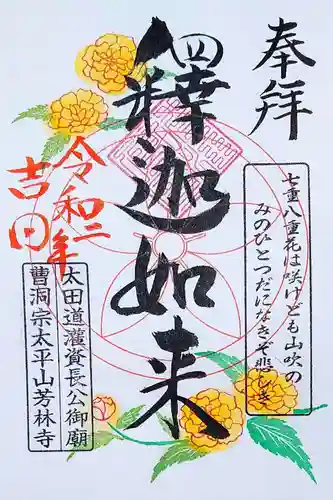 奉拝
七重八重花は咲けども山吹の
みのひとつだになきぞ悲しき
釋迦如来
令和二年
吉日
太田道灌資長公御廟
曹洞宗太平山芳林寺